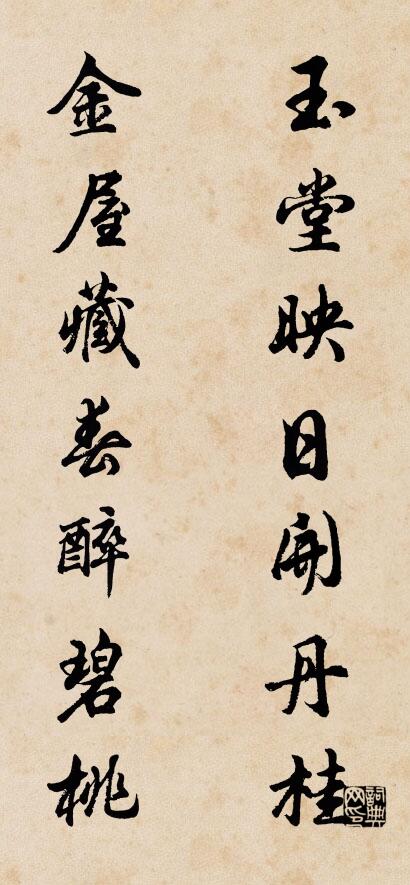 玉堂映日開丹桂
金屋藏春醉碧桃
詞典网印